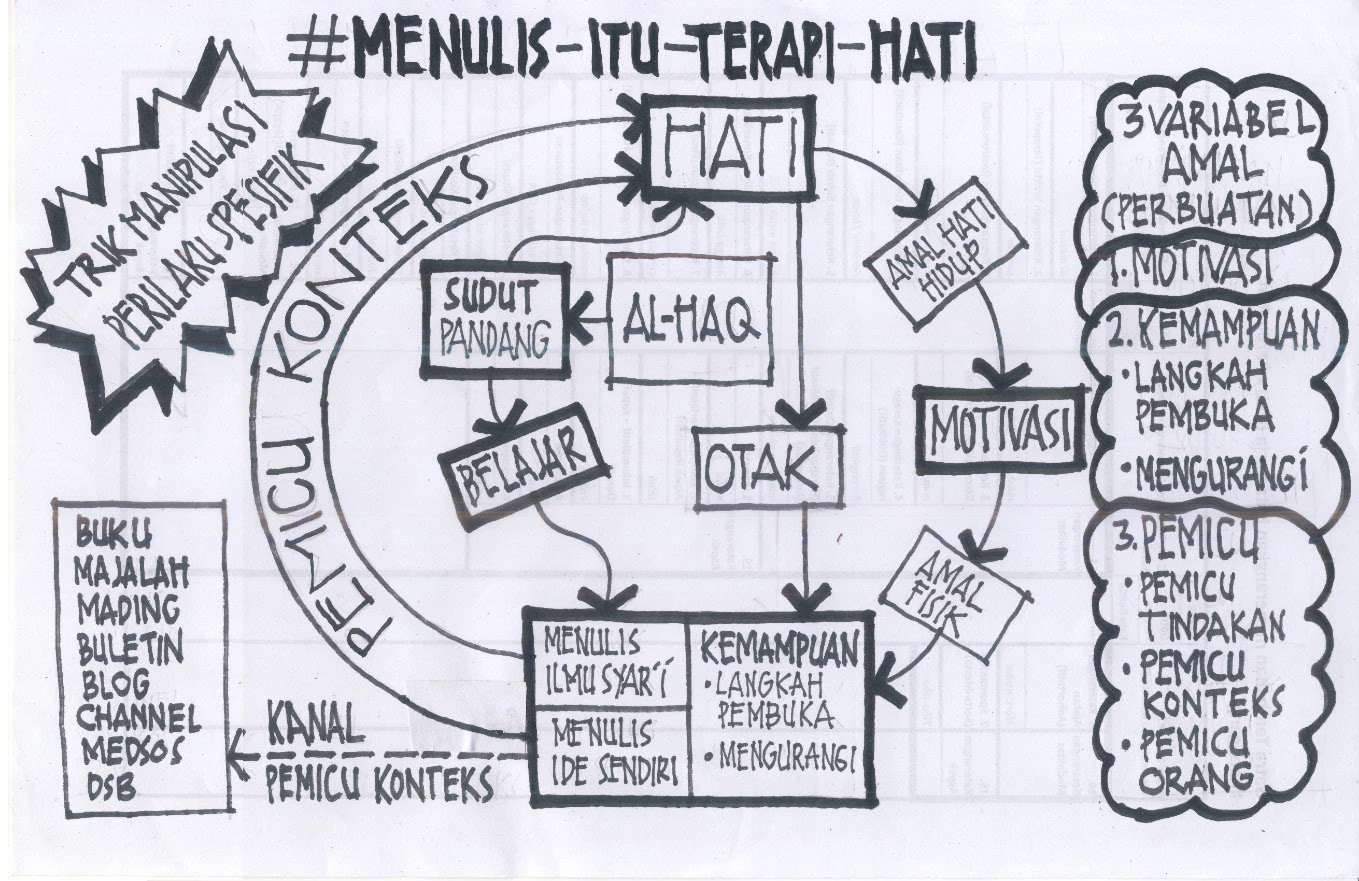 #MENULIS-ITU-TERAPI-HATI
TRIK MANIPULASI
PERILAKU SPESIFIK
PEMICU KONTEKS
HATI
AMAL HATI
HIDUP
SUDUT
PANDANG
AL-HAQ
BELAJAR
OTAK
MOTIVASI
AMAL
FISIK
MENULIS
ILMU SYAR'I
MENULIS
IDE SENDIRI
KEMAMPUAN
•LANGKAH
PEMBUKA
•MENGURANGI
KANAL
PEMICU KONTEKS
BUKU
MAJALAH
MADING
BULETIN
BLOG
CHANNEL
MEDSOS
DSB
3 VARIABEL
AMAL
(PERBUATAN)
1. MOTIVASI
2. KEMAMPUAN
•LANGKAH
PEMBUKA
•MENGURANGI
3. PEMICU
•PEMICU
TINDAKAN
•PEMICU
KONTEKS
•PEMICU
ORANG